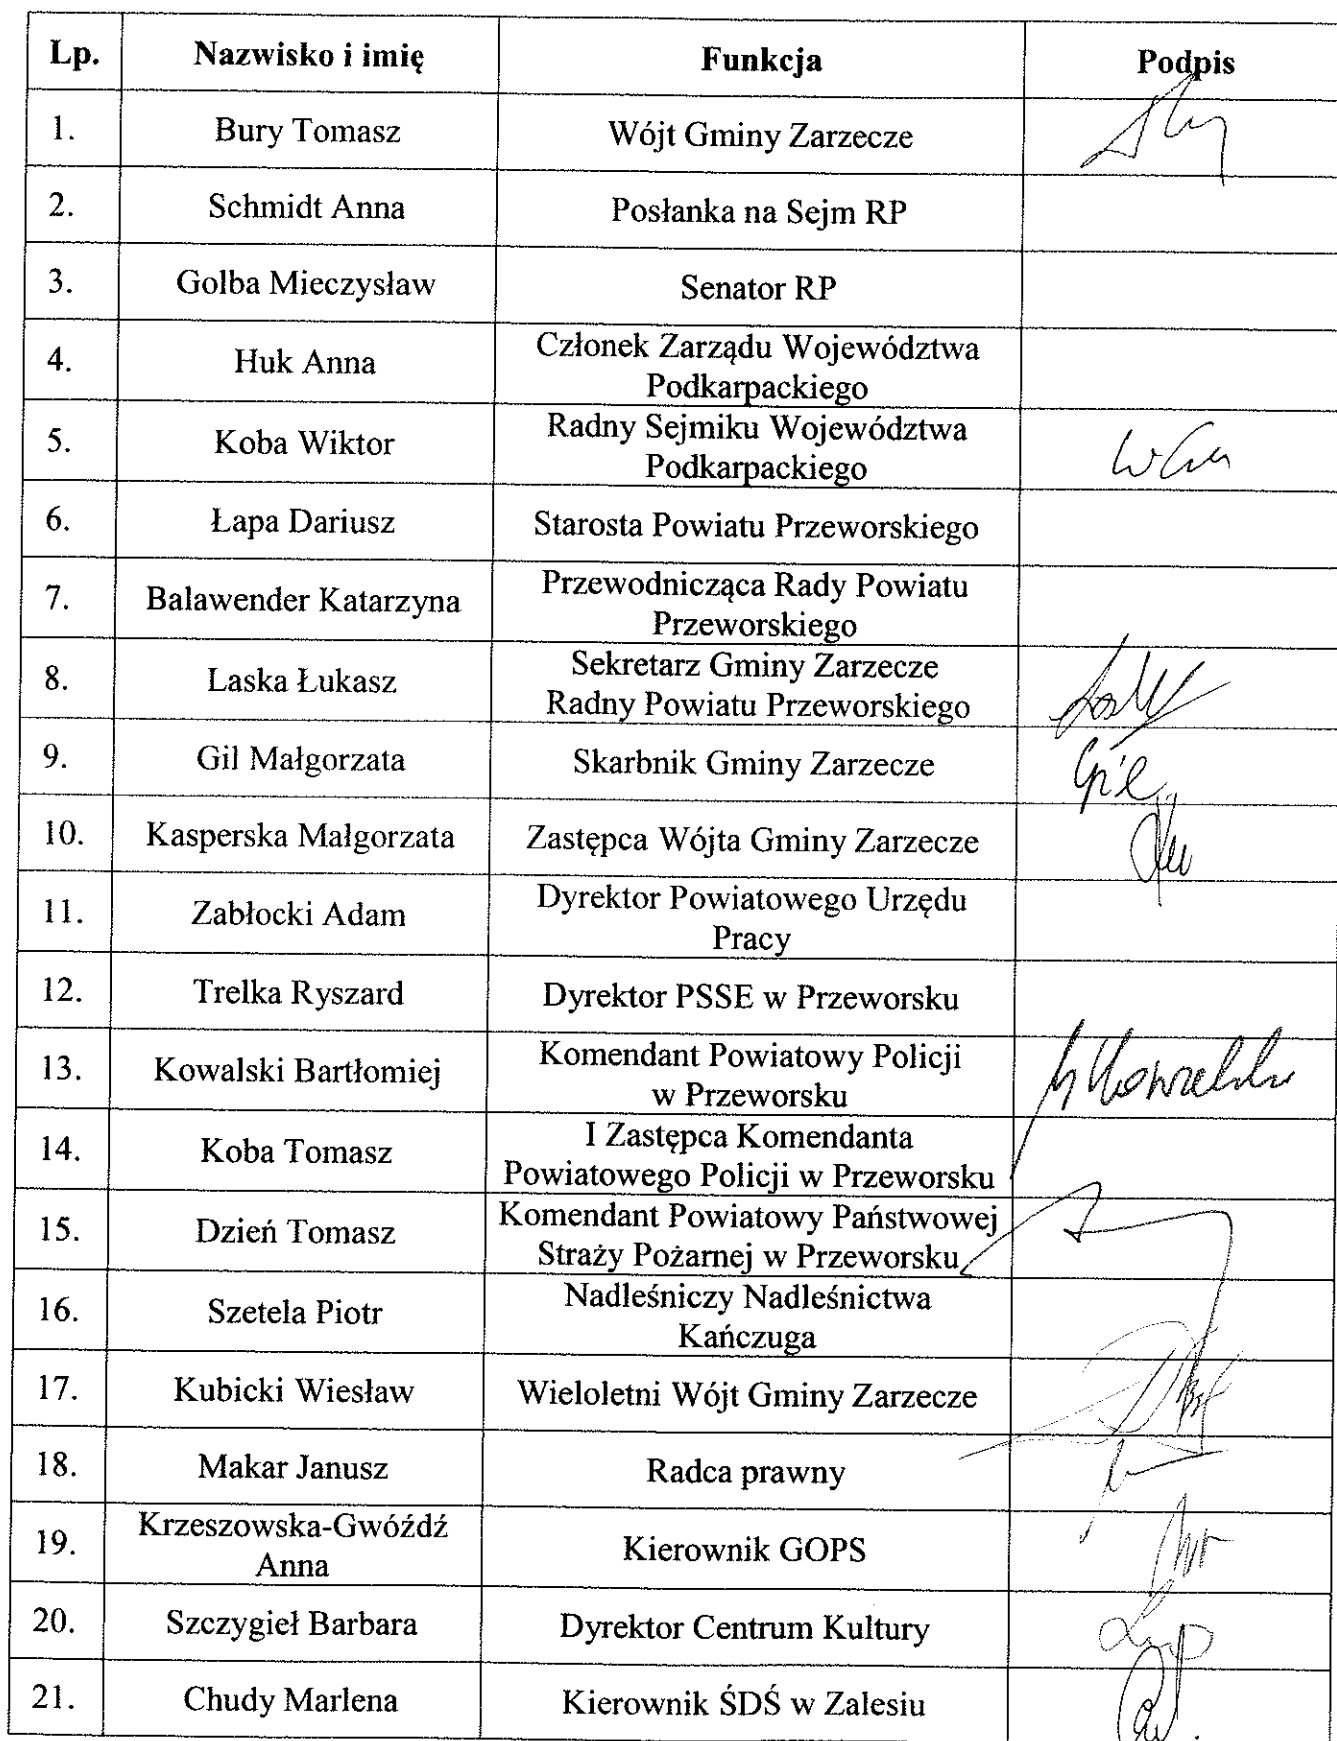 Lp. Nazwisko i imię Funkcja Podpis
1. Bury Tomasz Wójt Gminy Zarzecze
2. Schmidt Anna Posłanka na Sejm RP
3. Golba Mieczysław Senator RP
4. Huk Anna Członek Zarządu Województwa
Podkarpackiego
5. Koba Wiktor Radny Sejmiku Województwa
Podkarpackiego
6. Łapa Dariusz Starosta Powiatu Przeworskiego
7. Balawender Katarzyna Przewodnicząca Rady Powiatu
Przeworskiego
8. Laska Łukasz Sekretarz Gminy Zarzecze
Radny Powiatu Przeworskiego
9. Gil Małgorzata Skarbnik Gminy Zarzecze Gil
10. Kasperska Małgorzata Zastępca Wójta Gminy Zarzecze
11. Zabłocki Adam Dyrektor Powiatowego Urzędu
Pracy
12. Trelka Ryszard Dyrektor PSSE w Przeworsku
13. Kowalski Bartłomiej Komendant Powiatowy Policji
w Przeworsku
14. Koba Tomasz I Zastępca Komendanta
Powiatowego Policji w Przeworsku
15. Dzień Tomasz Komendant Powiatowy Państwowej
Straży Pożarnej w Przeworsku
16. Szetela Piotr Nadleśniczy Nadleśnictwa
Kańczuga
17. Kubicki Wiesław Wieloletni Wójt Gminy Zarzecze
18. Makar Janusz Radca prawny
19. Krzeszowska-Gwóźdź
Anna Kierownik GOPS
20. Szczygieł Barbara Dyrektor Centrum Kultury
21. Chudy Marlena Kierownik ŚDŚ w Zalesiu